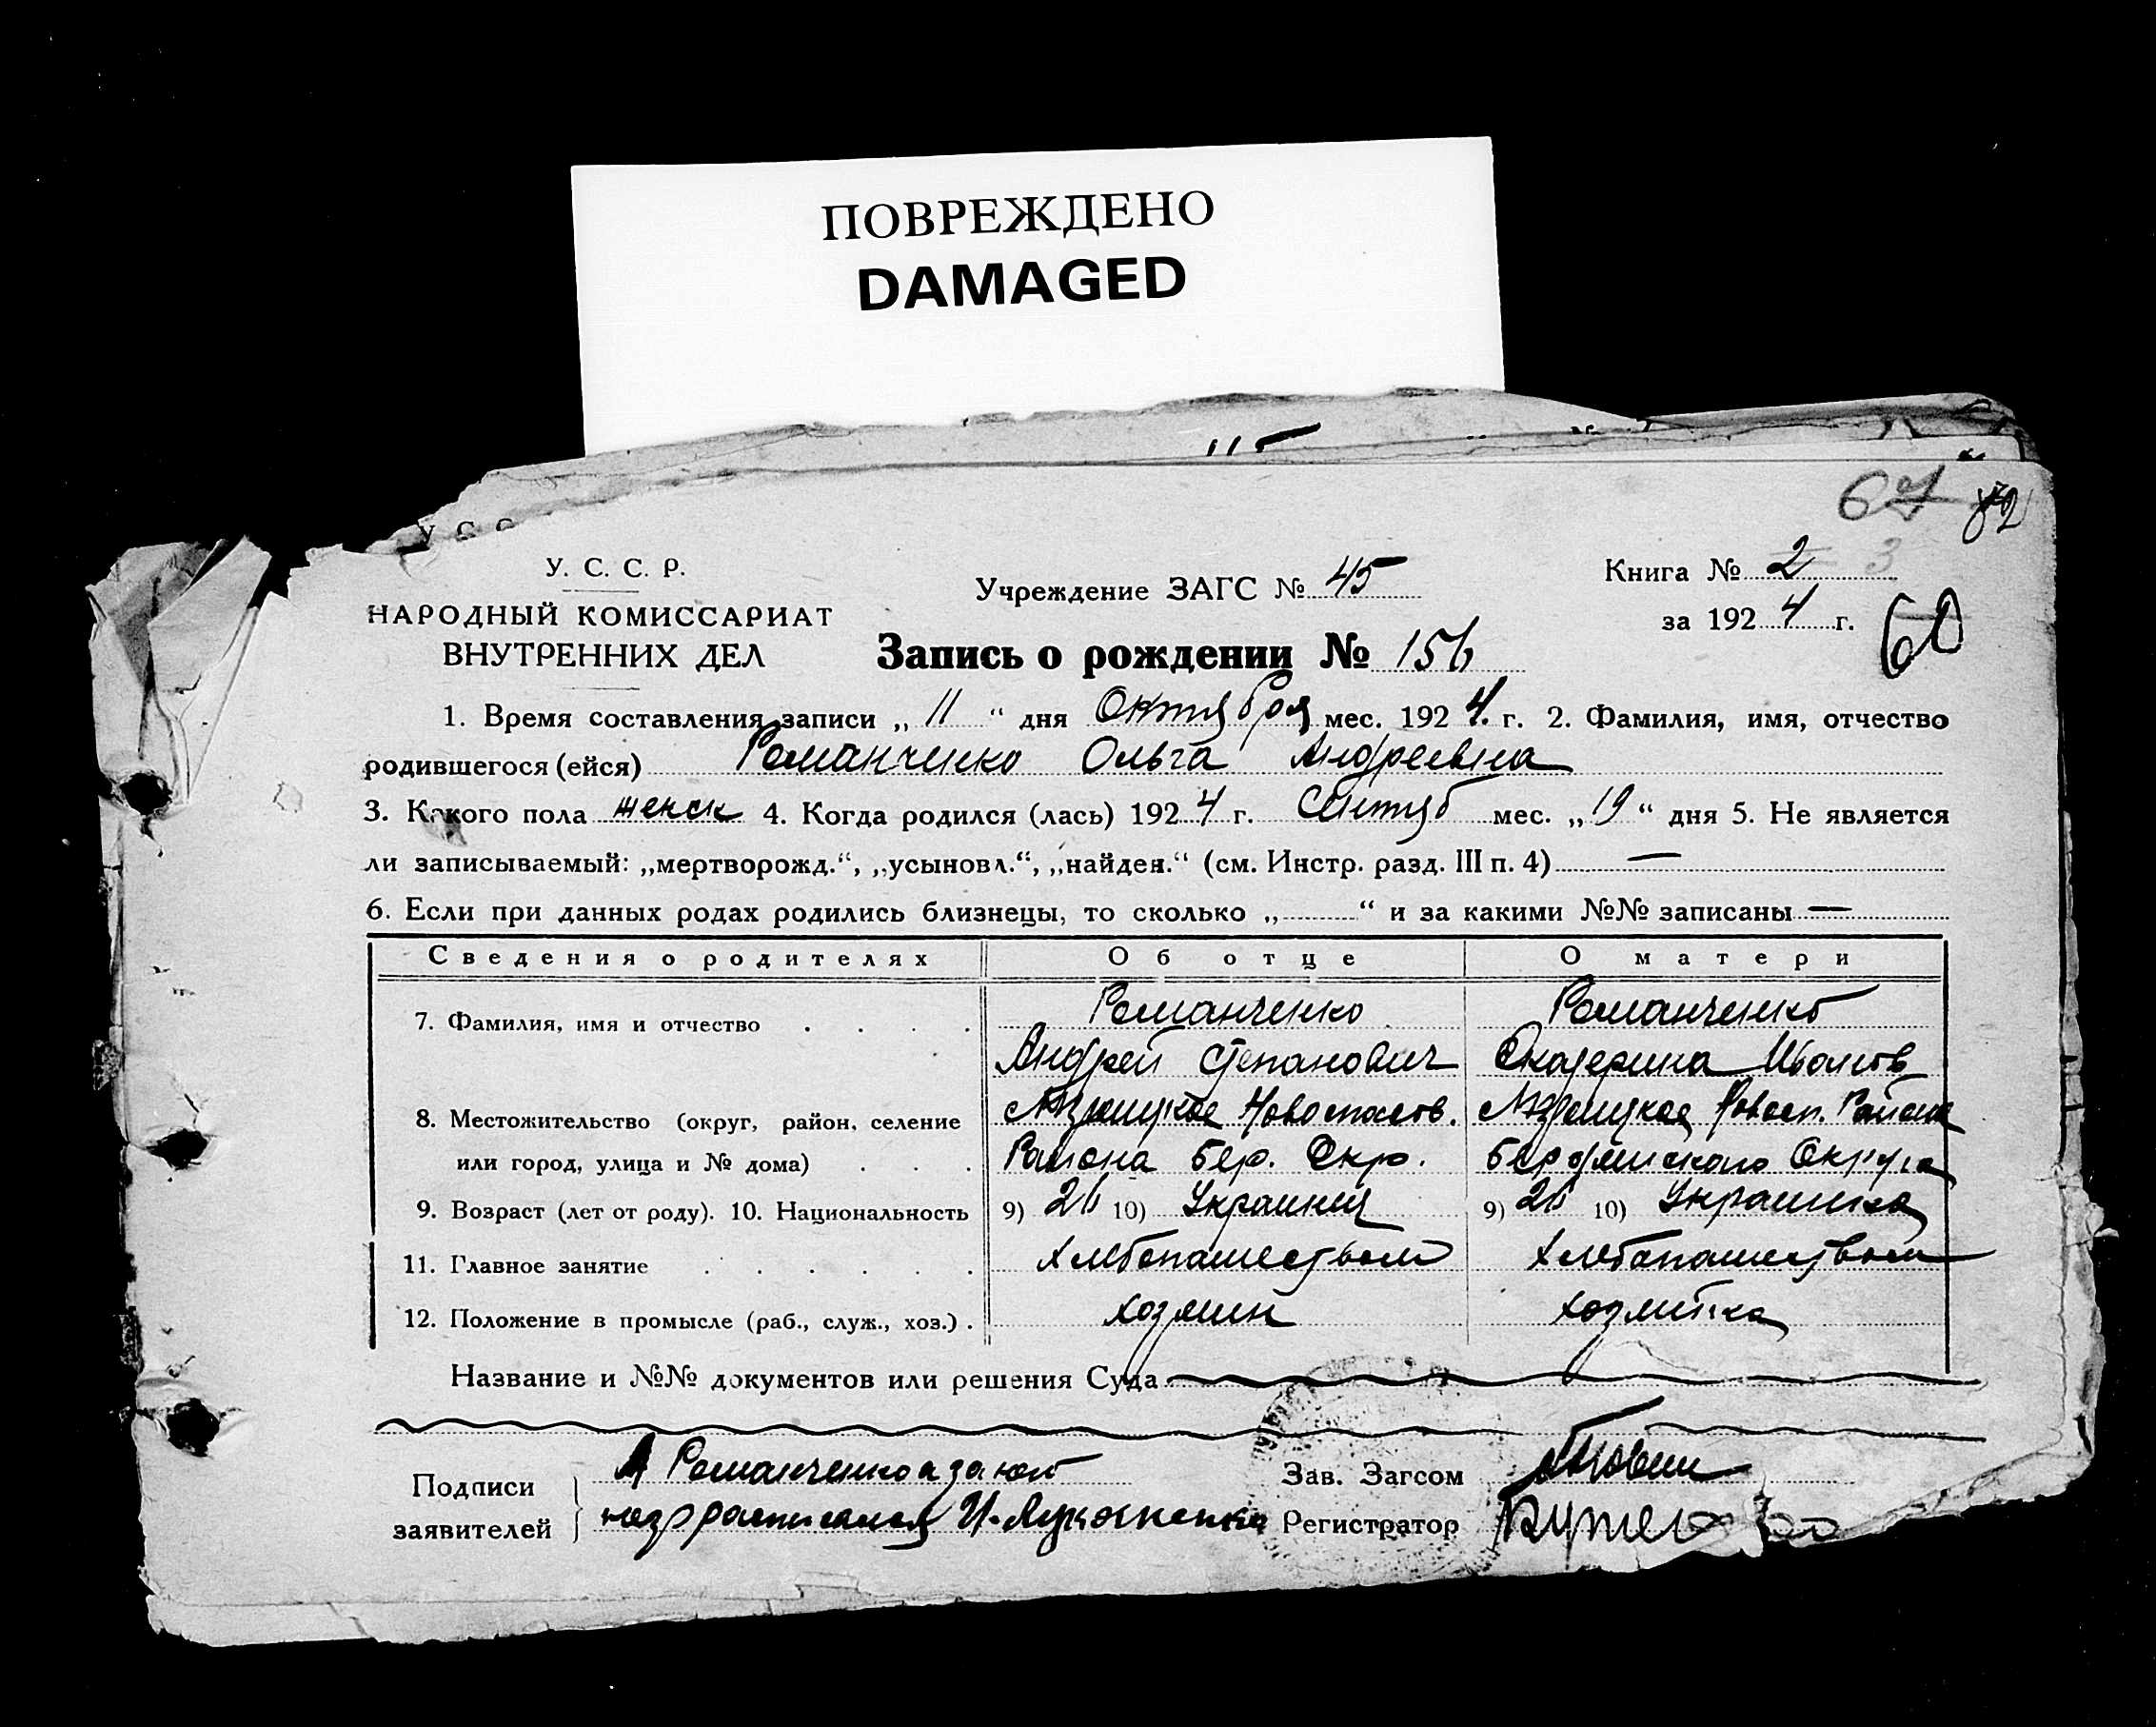 ПОВРЕЖДЕНО
DAMAGED
115
У С С
67 82
У. С. С. Р.
НАРОДНЫЙ КОМИССАРИАТ
ВНУТРЕННИХ ДЕЛ
Учреждение ЗАГС № 45
Книга № 2 3
за 1924 г. 60
Запись о рождении № 156
1. Время составления записи „ 11 “ дня Октября мес. 1924. г. 2. Фамилия, имя, отчество
родившегося (ейся) Романченко Ольга Андреевна
3. Какого пола женск 4. Когда родился (лась) 1924 г. Сентяб мес. „19“ дня 5. Не является
ли записываемый: „мертворожд.“, „усыновл.“, „найден.“ (см. Инстр. разд. III п. 4) —
6. Если при данных родах родились близнецы, то сколько „ “ и за какими №№ записаны —
Сведения о родителях Об отце О матери
7. Фамилия, имя и отчество . . . . Романченко Романченко
Андрей Степанович Екатерина Иванов
8. Местожительство (округ, район, селение Новоспасов. Новосп. Района
или город, улица и № дома) . . . Района Бер. Окр. Бердянского Округа
9. Возраст (лет от роду). 10. Национальность 9) 26 10) Украинец 9) 26 10) Украинка
11. Главное занятие . . . . . . Хлебопашеством Хлебопашеством
12. Положение в промысле (раб., служ., хоз.) . хозяин хозяйка
Название и №№ документов или решения Суда
Подписи заявителей
А Романченко а за него
расписался И.
Зав. Загсом
Регистратор